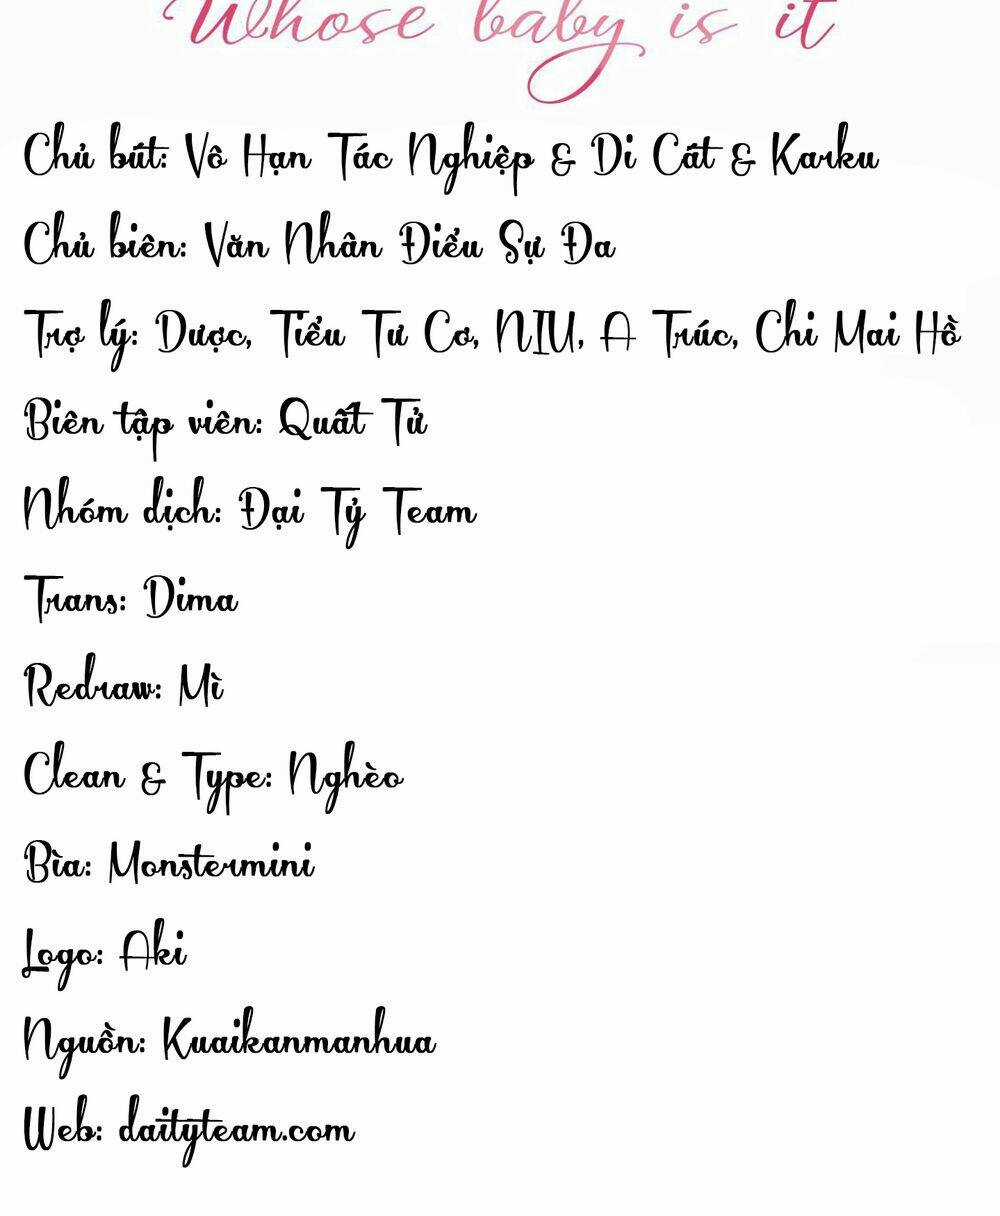 Whose baby is it
Chủ bút: Vô Hạn Tác Nghiệp & Di Cát & Karku
Chủ biên: Văn Nhân Điểu Sự Đa
Trợ lý: Dược, Tiểu Tư Cơ, NIU, A Trúc, Chi Mai Hồ
Biên tập viên: Quất Tử
Nhóm dịch: Đại Tỷ Team
Trans: Dima
Redraw: Mì
Clean & Type: Nghèo
Bìa: Monstermini
Logo: Aki
Nguồn: Kuaikanmanhua
Web: daityteam.com